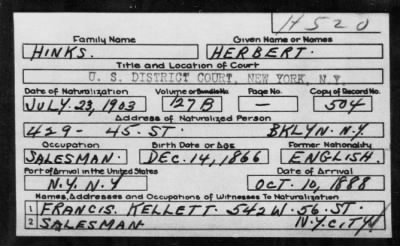 H520
Family Name Given Name or Names
HINKS. HERBERT.
Title and Location of Court
U. S. DISTRICT COURT, NEW YORK, N.Y.
Date of Naturalization Volume or Bundle No. Page No. Copy of Record No.
JULY. 23, 1903 127B — 504
Address of Naturalized Person
429- 45. ST. BKLYN. N.Y.
Occupation Birth Date or Age Former Nationality
SALESMAN. DEC. 14, 1866 ENGLISH.
Port of Arrival in the United States Date of Arrival
N.Y. N.Y OCT. 10, 1888
Names, Addresses and Occupations of Witnesses To Naturalization
1 FRANCIS. KELLETT. 542 W. 56. ST.
2 SALESMAN N.Y. CITY